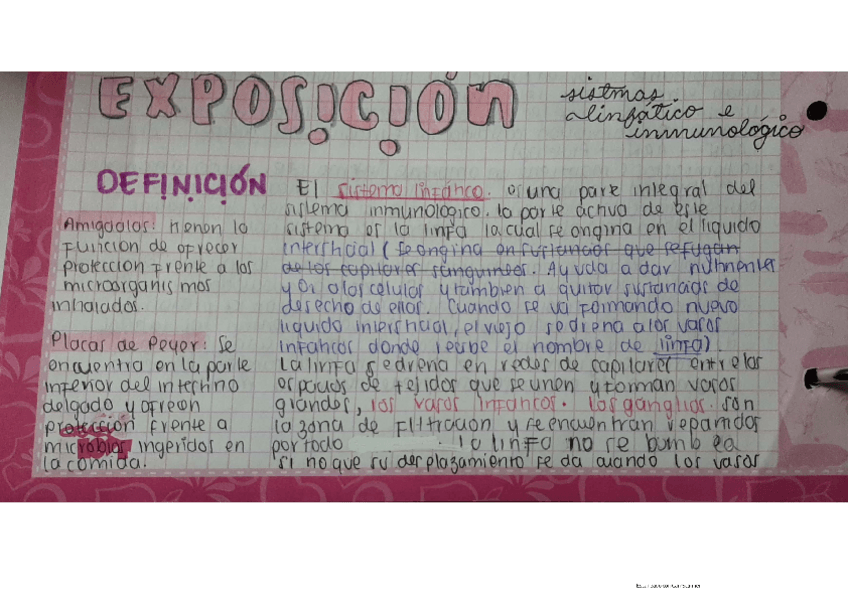 EXPOSICIÓN
sistmas.
linfático e
inmunológico
DEFINICIÓN
Amigdalas: tienen la
función de ofrecer
protección frente a los
microorganismos
inhalados.
Placas de Peyer: Se
encuentra en la parte
inferior del intestino
delgado y ofrecen
protección frente a
microbios ingeridos en
la comida.
El sistema linfático. es una parte integral del
sistema inmunológico. la parte activa de este
sistema es la linfa la cual se origina en el liquido
intersticial (se origina en sustancias que se fugan
de los capilares sanguineos. Ayuda a dar nutrientes
y O₂ a las celulas y tambien a quitar sustancias de
desecho de ellas. Cuando se va formando nuevo
liquido intersticial, el viejo se drena a los vasos
linfaticos donde recibe el nombre de linfa)
La linfa se drena en redes de capilares entre los
espacios de tejidos que se unen y forman vasos
grandes, los vasos linfaticos. Los ganglios. son
la zona de filtración y se encuentran repartidos
por todo . la linfa no se bombea
si no que su desplazamiento se da cuando los vasos